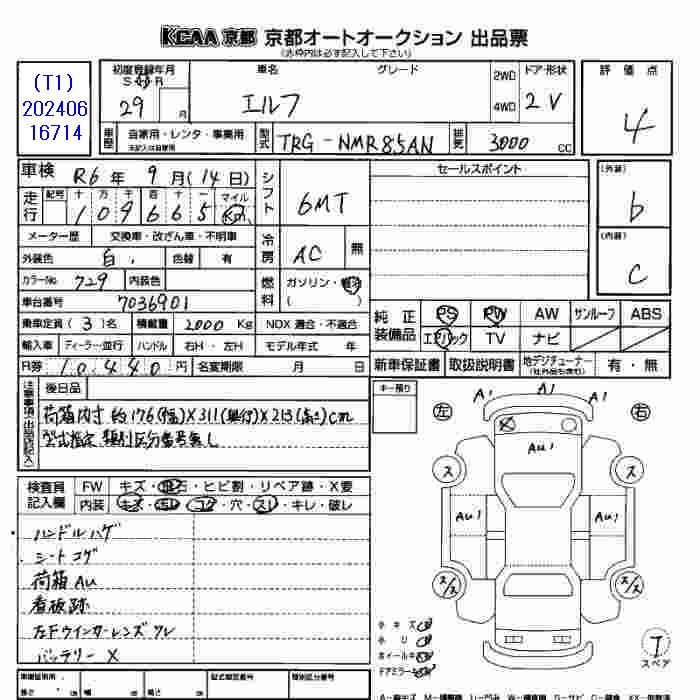 KCAA 京都 京都オートオークション 出品票
(赤枠内は必ず記入して下さい)
(T1)
202406
16714
初度登録年月
S H R
29 月
車名 グレード
エルフ
2WD
4WD
ドア・形状
2 V
評価点
4
車歴
自家用・レンタ・事業用
未記入は自家用
型式
TRG-NMR85AN
排気
3000 cc
車検 R6年 9月(14日)
走行
記号 十 万 千 百 十 一 マイル
1 0 9 6 6 5 Km
シフト
6MT
セールスポイント
(外装)
b
(内装)
C
メーター歴 交換車・改ざん車・不明車
外装色 白 色替 有
冷房
AC 無
カラーNo. 729 内装色
燃料
ガソリン・軽油
( )
車台番号 7036901
乗車定員(3)名 積載量 2000 Kg NOX 適合・不適合
輸入車 ディーラー・並行 ハンドル 右H・左H モデル年式 年
R券 10440円 名変期限 月 日
純正装備品
PS PW AW サンルーフ ABS
エアバック TV ナビ
新車保証書 取扱説明書 地デジチューナー 有・無
(社外品も含む)
注意事項(出品店記入)
後日品
荷箱内寸 約176(幅)×311(奥行)×213(高さ)cm
型式指定 類別区分番号無し
キー預り
左
右
A1 A1 A1
AU1
AU1 AU1
ス ス
ス/ス ス/ス
検査員記入欄
FW キズ・飛石・ヒビ割・リペア跡・X要
内装 キズ・汚レ・コゲ・穴・スレ・キレ・破レ
・ハンドルハゲ
・シートコゲ
荷箱AU
看板跡
左Fウインカーレンズワレ
バッテリーX
小キズ
小凹
ホイールキズ
ドアミラーキズ
スペア
型式指定番号 類別区分番号
長さ cm 幅 cm 高さ cm